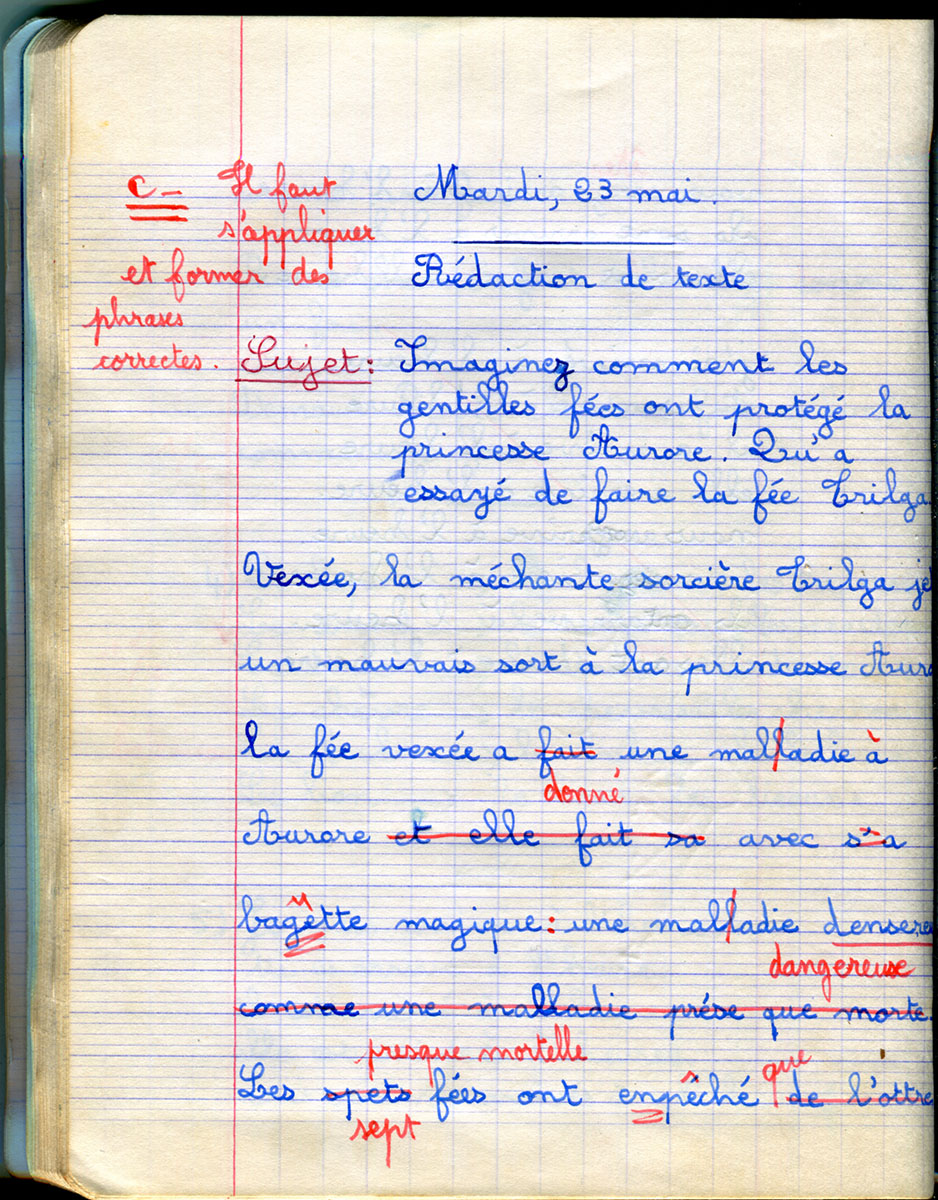 C- Il faut
s'appliquer
et former des
phrases
correctes.
Mardi, 23 mai.
Rédaction de texte
Sujet: Imaginez comment les
gentilles fées ont protégé la
princesse Aurore. Qu'a
essayé de faire la fée Trilga
Vexée, la méchante sorcière Trilga
un mauvais sort à la princesse
la fée vexée a fait une malladie à
donné
Aurore et elle fait sa avec s'a
bagette magique: une malladie
u
dangereuse
comme une malladie prése que morte.
presque mortelle
que
Les spets fées ont enpêché de l'ottre
sept